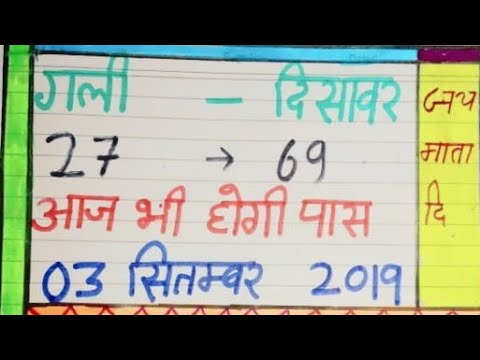 गली - दिसावर
27 → 69
आज भी होगी पास
03 सितम्बर 2019
जय
माता
दि